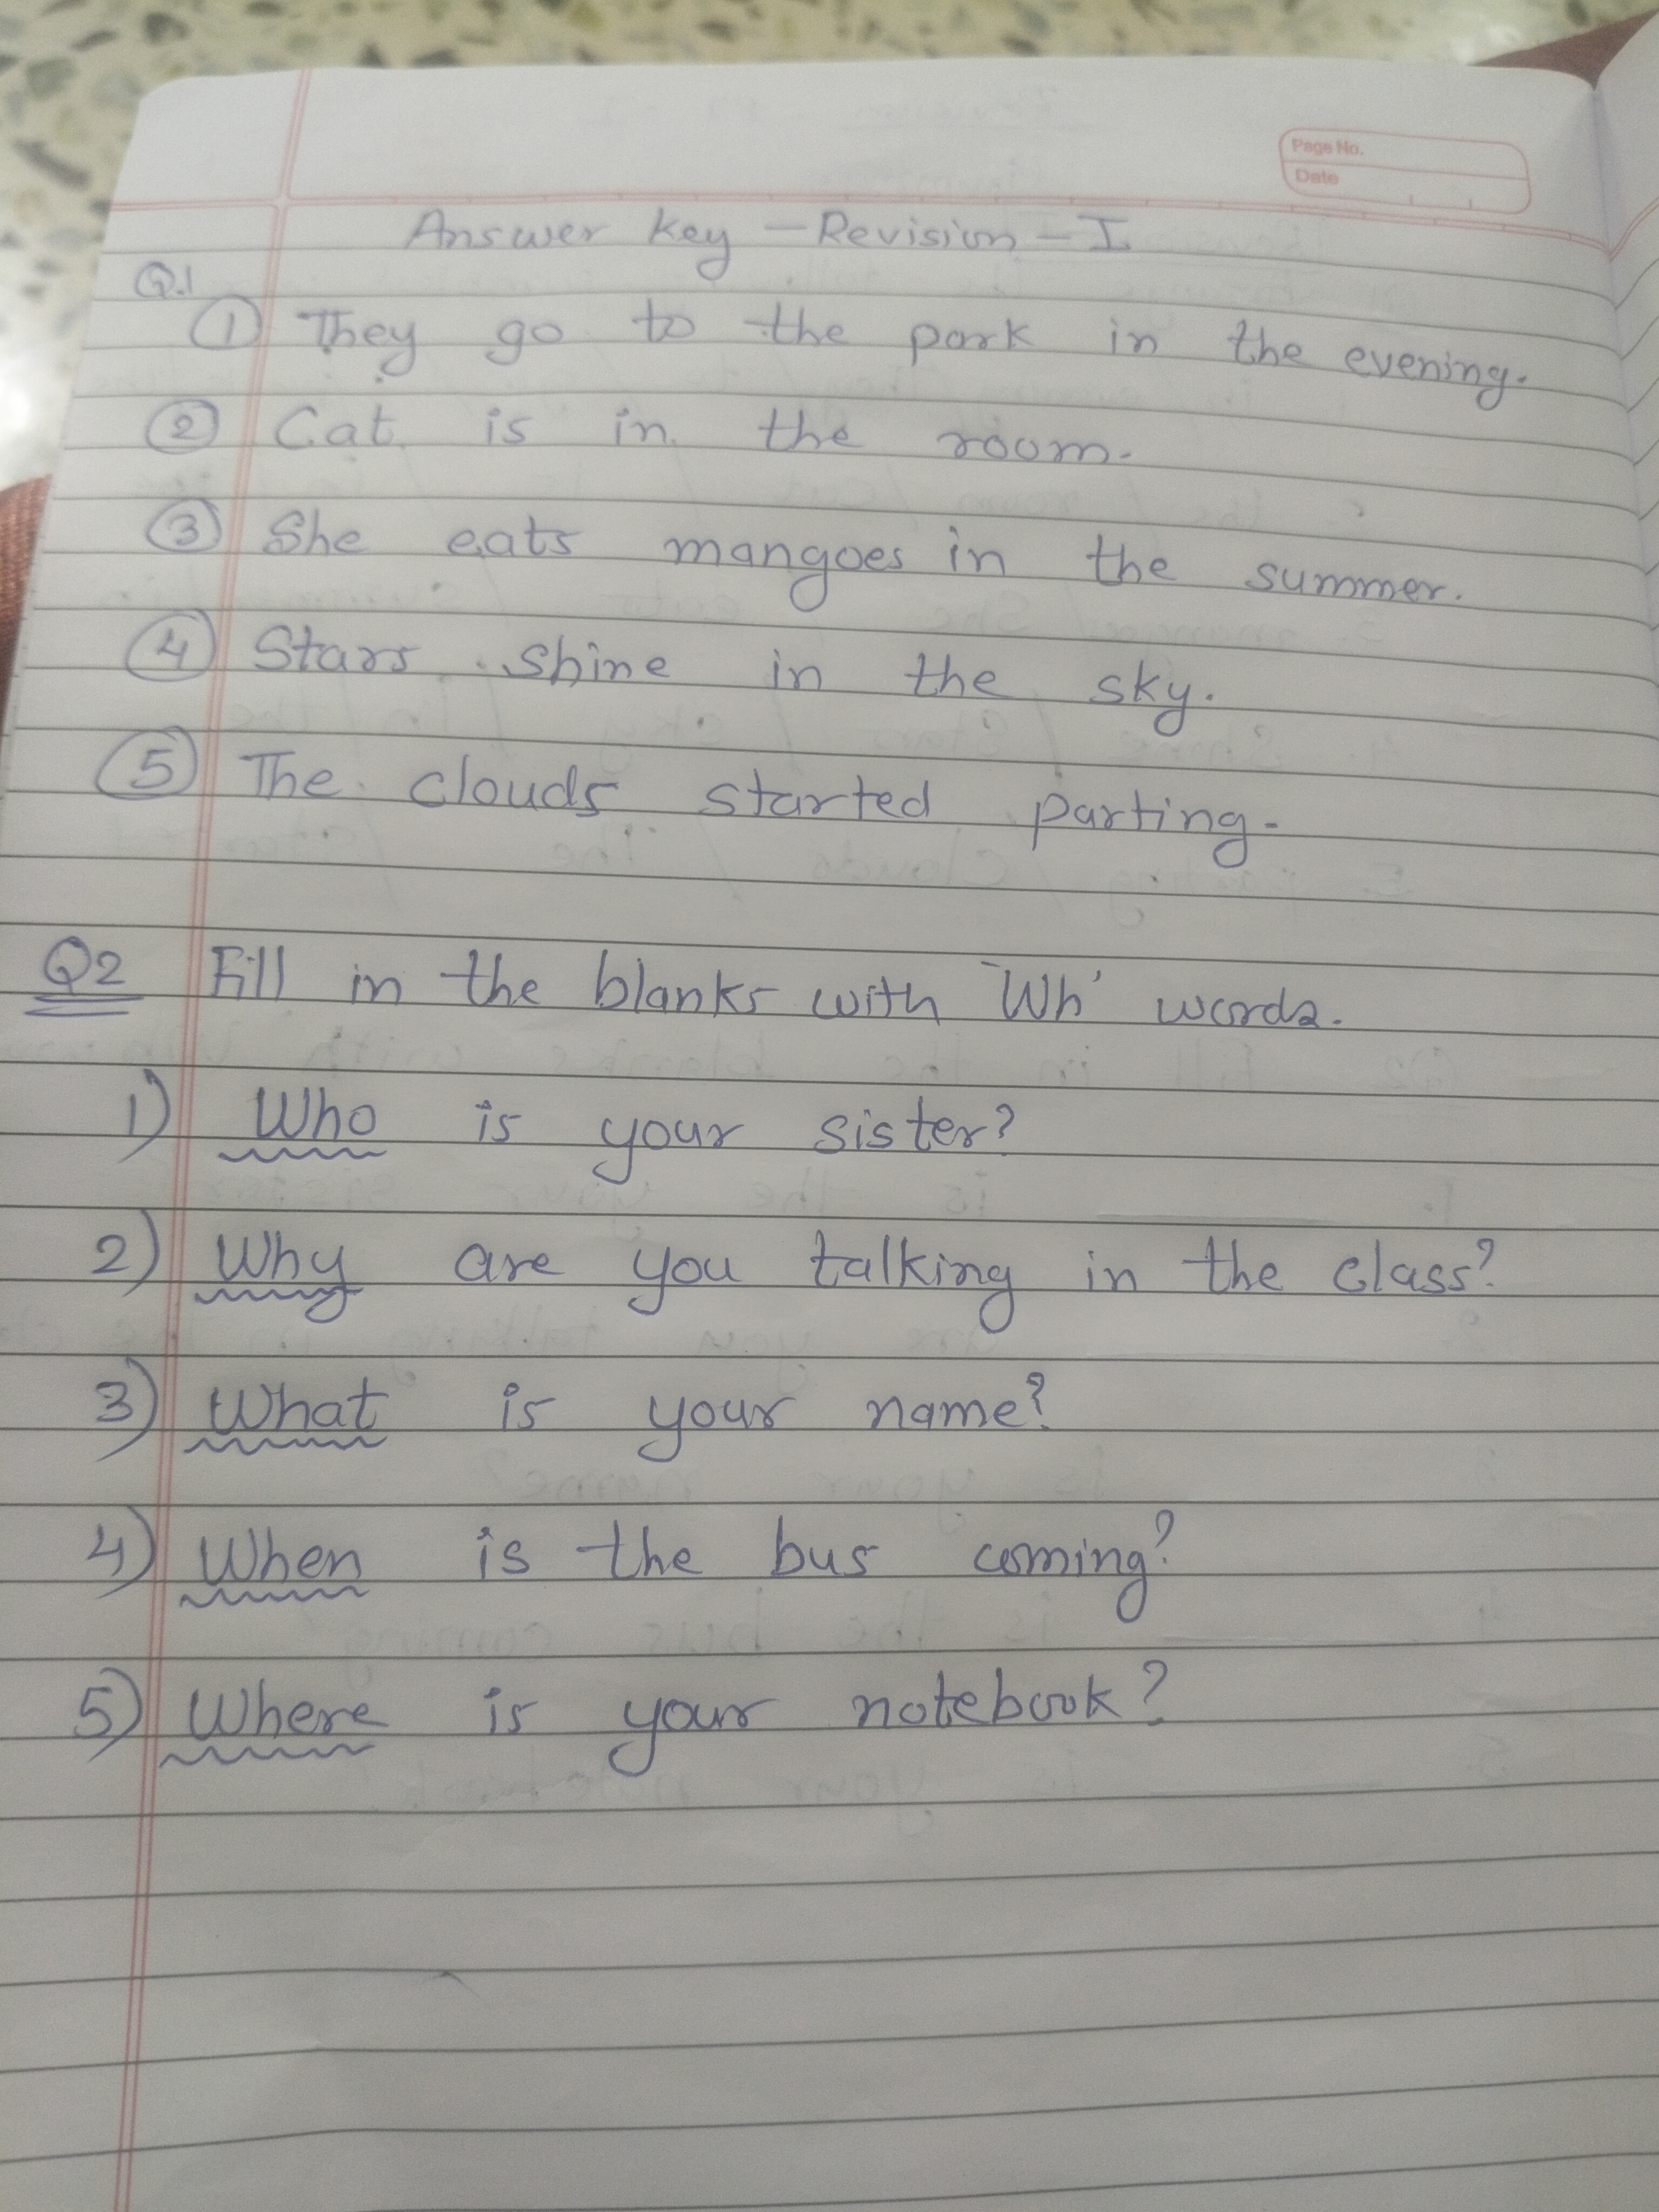 Page No.
Date
Answer key - Revision - I
Q.1
① They go to the park in the evening.
② Cat is in the room.
③ She eats mangoes in the summer.
④ Stars shine in the sky.
⑤ The clouds started parting.
Q2 Fill in the blanks with 'Wh' words.
1) Who is your sister?
2) Why are you talking in the class?
3) What is your name?
4) When is the bus coming?
5) Where is your notebook?